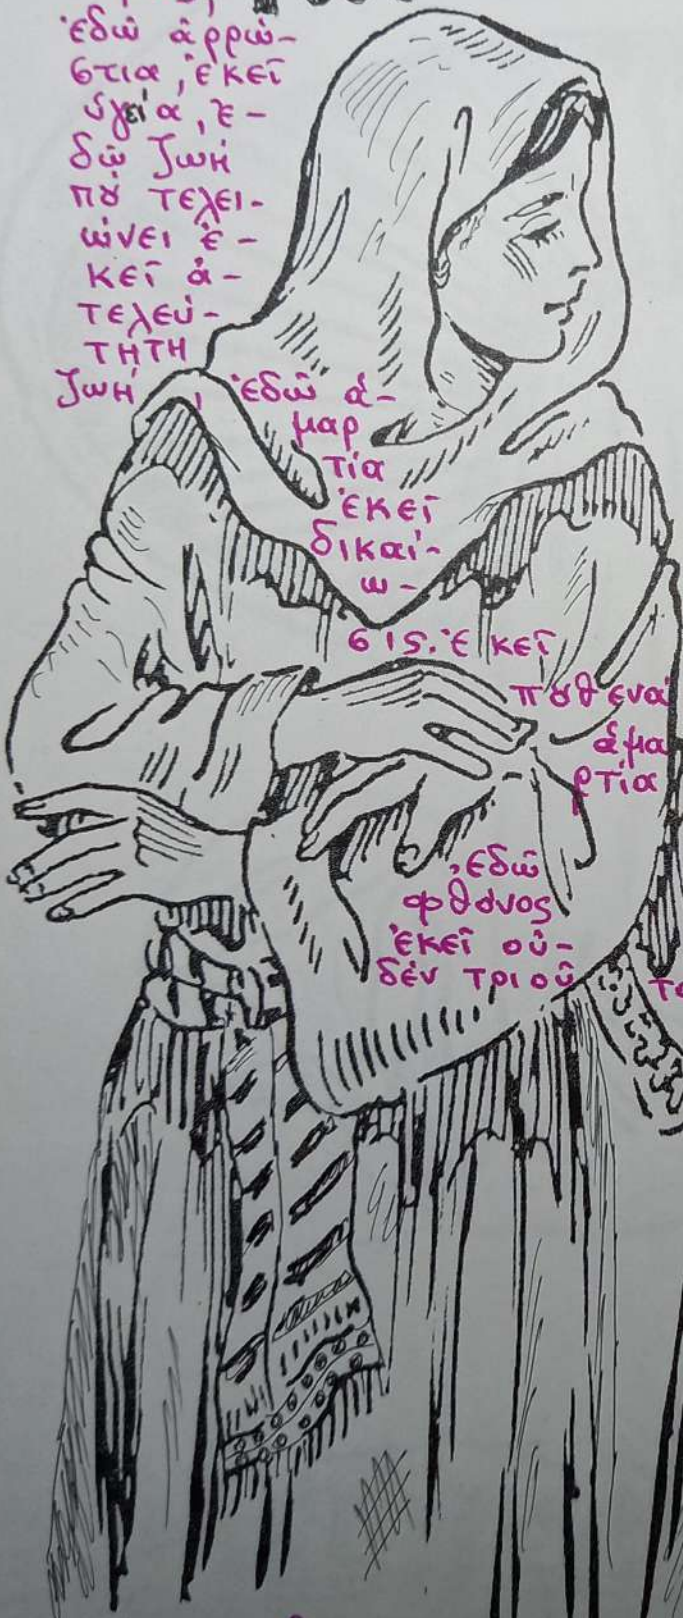 ἐδῶ ἀρρώ-
στια, ἐκεῖ
ὑγεία, ἐ-
δῶ ζωή
πȣ̀ τελει-
ώνει ἐ-
κεῖ ἀ-
τελεύ-
τητη
ζωή, ἐδῶ ἁ-
μαρ
τία
ἐκεῖ
δικαί-
ω-
σις. Ἐκεῖ
πȣθενά
ἁμα
ρτία
, ἐδῶ
φθόνος
ἐκεῖ οὐ-
δέν τριοῦ